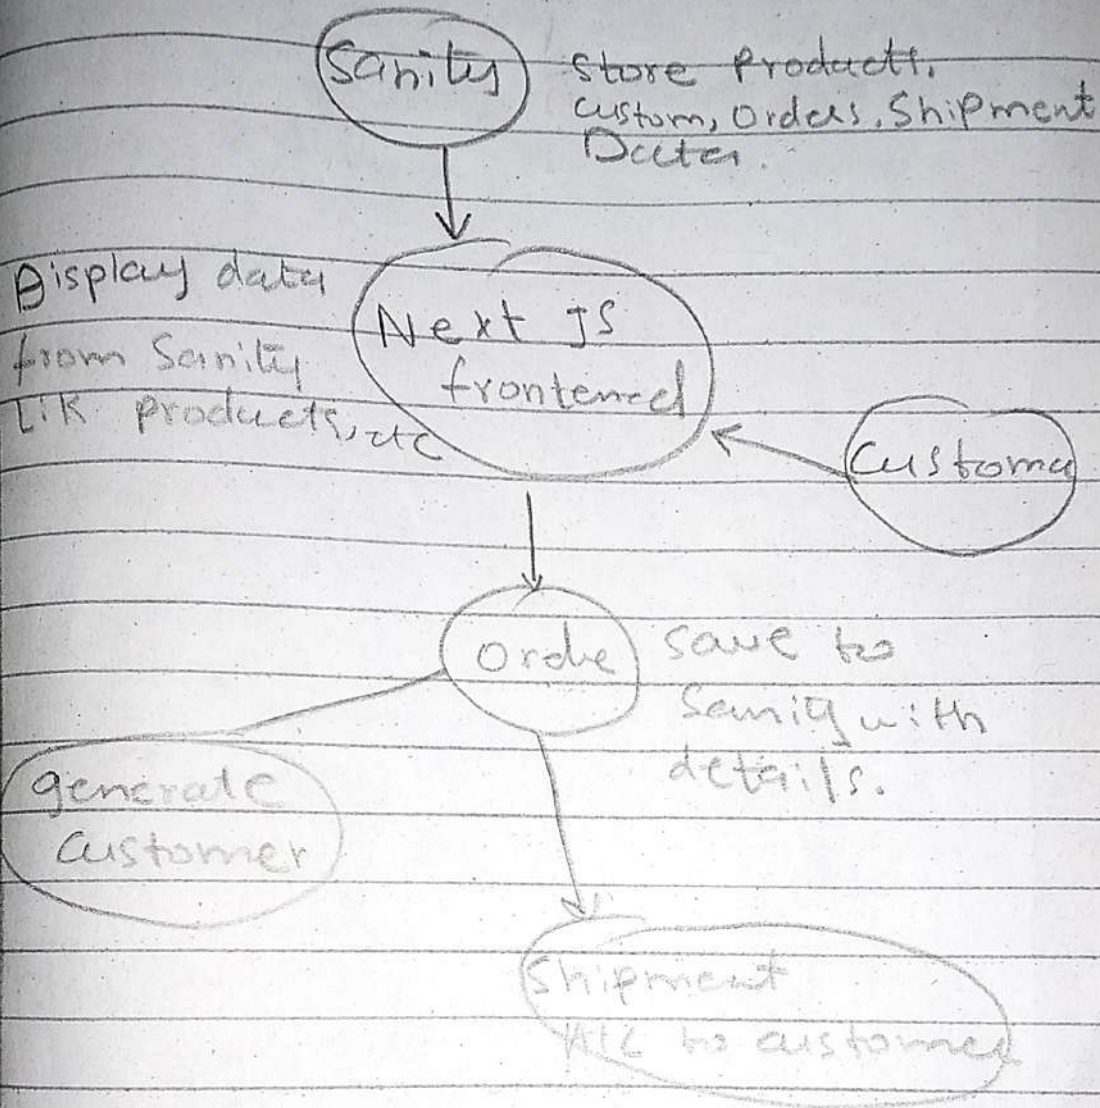 Sanity
Store Products,
Custom, Orders, Shipment
Data.
Display data
from Sanity
Lik products, etc
Next JS
frontened
Custome
Orde
Save to
Sanity with
details.
generate
Customer
Shipment
A/C to customer